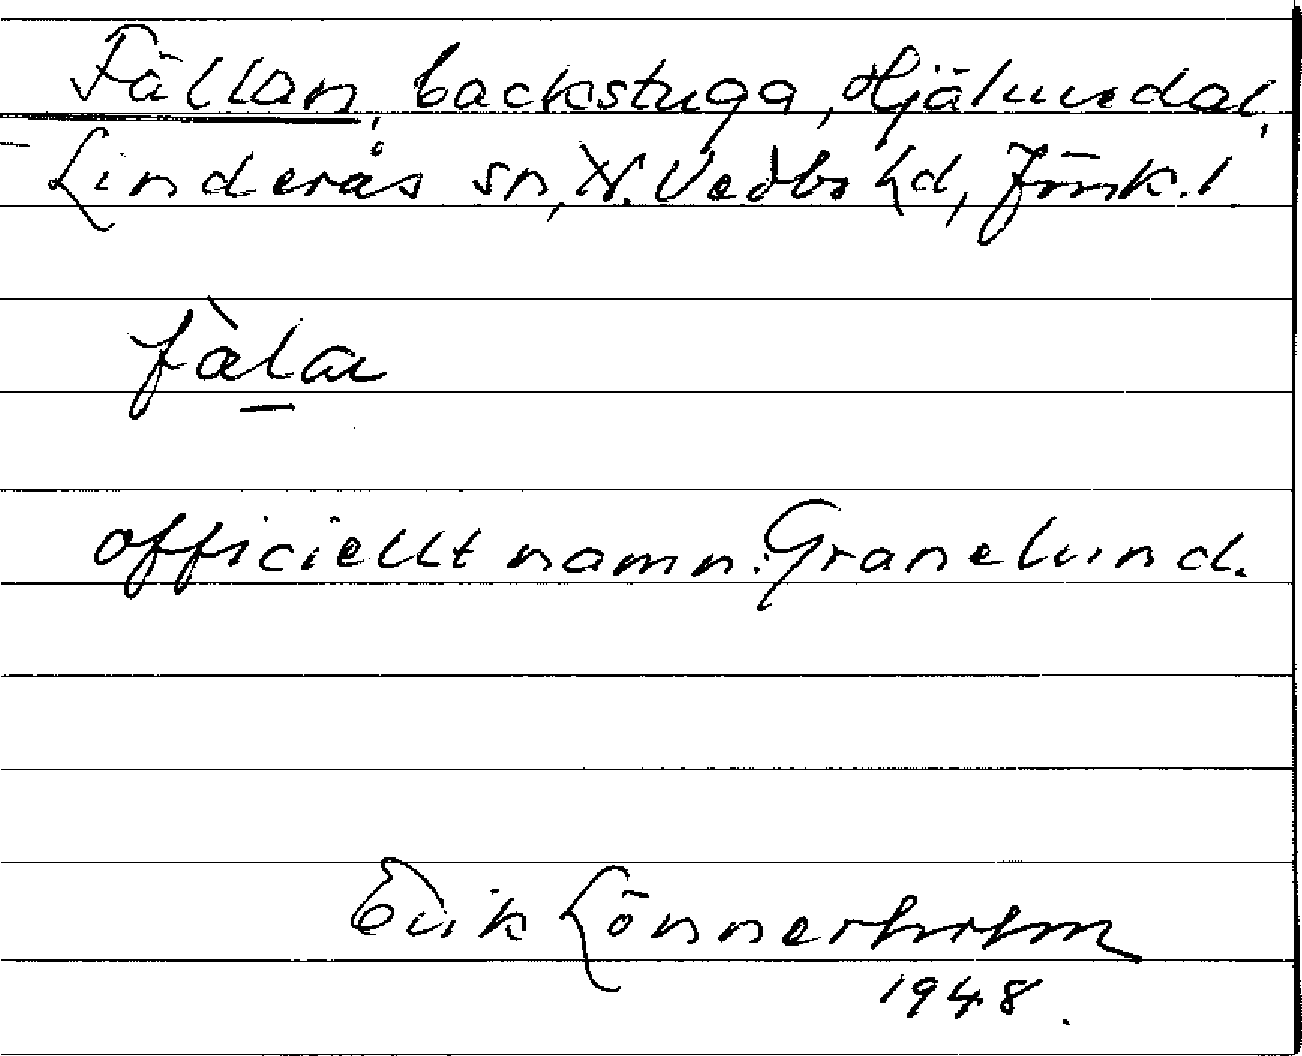 Fällan, backstuga, Hjälmdal,
Linderås sn, N. Vedbo hd, Jönk. l.
fàla
officiellt namn: Granelund.
Erik Lönnerholm
1948.